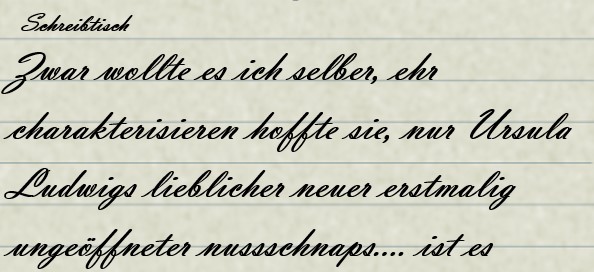 Schreibtisch
Zwar wollte es ich selber, ehr
charakterisieren hoffte sie, nur Ursula
Ludwigs lieblicher neuer erstmalig
ungeöffneter nussschnaps.... ist es